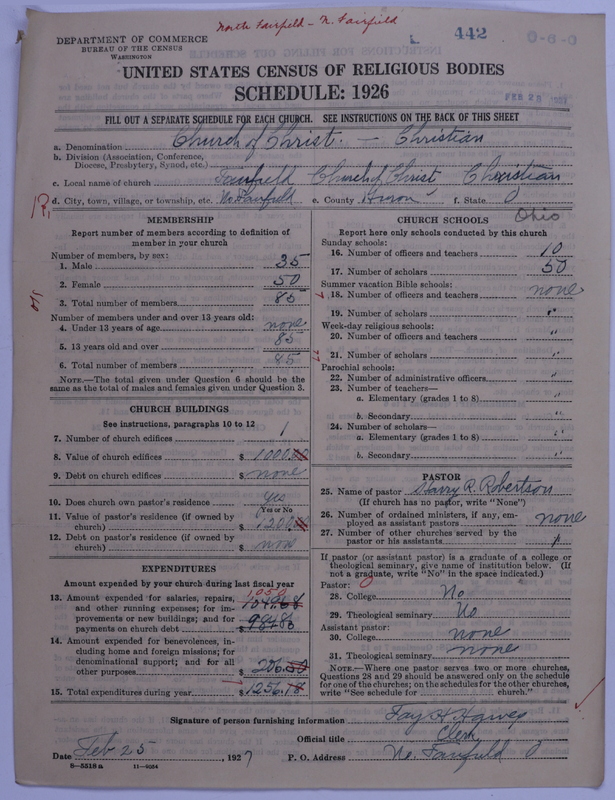 North Fairfield - N. Fairfield
DEPARTMENT OF COMMERCE
BUREAU OF THE CENSUS
WASHINGTON
442
0-6-0
UNITED STATES CENSUS OF RELIGIOUS BODIES
SCHEDULE: 1926
FEB 28 1927
FILL OUT A SEPARATE SCHEDULE FOR EACH CHURCH. SEE INSTRUCTIONS ON THE BACK OF THIS SHEET
a. Denomination Church of Christ. - Christian
b. Division (Association, Conference, Diocese, Presbytery, Synod, etc.)
c. Local name of church Fairfield Church of Christ Christian
d. City, town, village, or township, etc. No. Fairfield e. County Huron f. State O
Ohio
MEMBERSHIP
Report number of members according to definition of member in your church
Number of members, by sex:
1. Male 35
2. Female 50
3. Total number of members 85
Number of members under and over 13 years old:
4. Under 13 years of age none
5. 13 years old and over 85
6. Total number of members 85
NOTE.—The total given under Question 6 should be the same as the total of males and females given under Question 3.
CHURCH BUILDINGS
See instructions, paragraphs 10 to 12
7. Number of church edifices 1
8. Value of church edifices $ 1000.00
9. Debt on church edifices $ none
10. Does church own pastor's residence yes
(Yes or No)
11. Value of pastor's residence (if owned by church) $ 1200.00
12. Debt on pastor's residence (if owned by church) $ none
EXPENDITURES
Amount expended by your church during last fiscal year
1,050
13. Amount expended for salaries, repairs, and other running expenses; for improvements or new buildings; and for payments on church debt $
14. Amount expended for benevolences, including home and foreign missions; for denominational support; and for all other purposes $ 206.50
15. Total expenditures during year $ 1256.18
CHURCH SCHOOLS
Report here only schools conducted by this church
Sunday schools:
16. Number of officers and teachers 10
17. Number of scholars 50
Summer vacation Bible schools:
18. Number of officers and teachers none
19. Number of scholars "
Week-day religious schools:
20. Number of officers and teachers "
21. Number of scholars "
Parochial schools:
22. Number of administrative officers "
23. Number of teachers—
a. Elementary (grades 1 to 8) "
b. Secondary "
24. Number of scholars—
a. Elementary (grades 1 to 8) "
b. Secondary "
PASTOR
25. Name of pastor Harry R. Robertson
(If church has no pastor, write "None")
26. Number of ordained ministers, if any, employed as assistant pastors none
27. Number of other churches served by the pastor or his assistants
If pastor (or assistant pastor) is a graduate of a college or theological seminary, give name of institution below. (If not a graduate, write "No" in the space indicated.)
Pastor: 0
28. College No
29. Theological seminary No
Assistant pastor:
30. College none
31. Theological seminary none
NOTE.—Where one pastor serves two or more churches, Questions 28 and 29 should be answered only on the schedule for one of the churches; on the schedules for the other churches, write "See schedule for church."
Signature of person furnishing information Fay H
Official title Clerk
Date Feb 25, 1927 P. O. Address No. Fairfield O
8-5518 a 11-9084